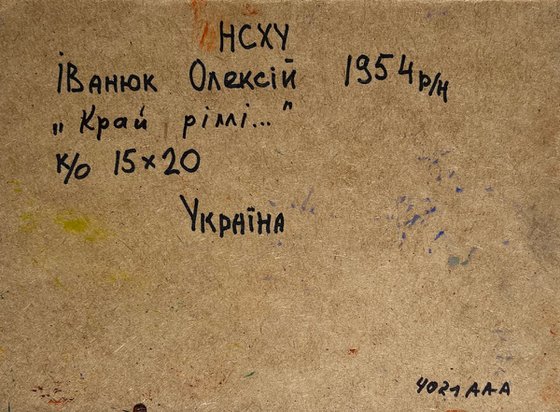 НСХУ
Іванюк Олексій 1954 р/н
„Край ріллі..."
к/о 15×20
Україна
4021 ААА